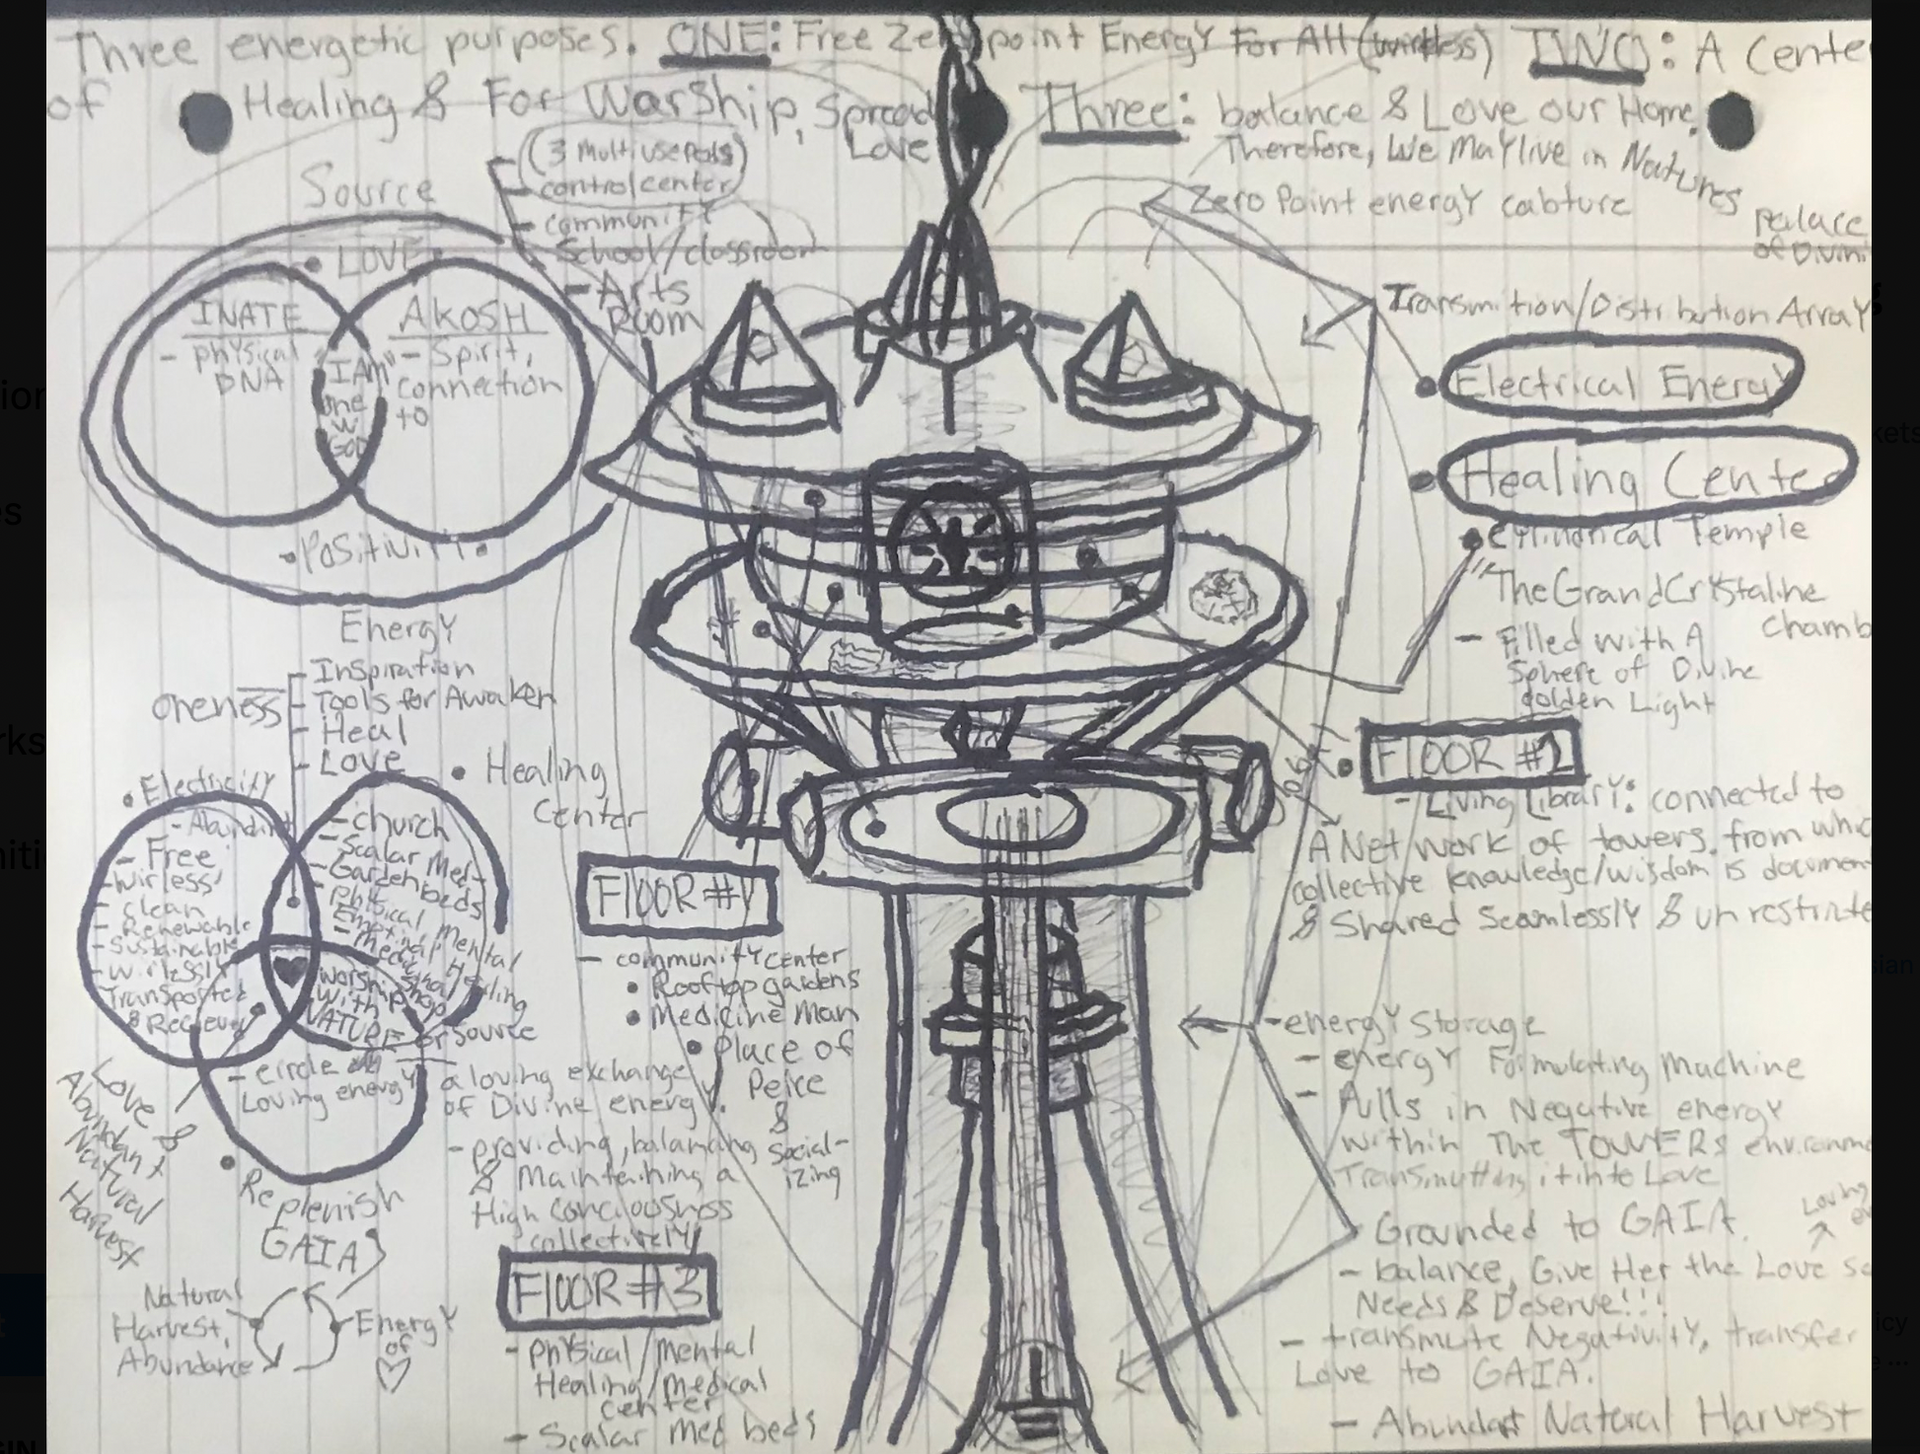 Three energetic purposes. ONE: Free Zero point Energy For All (wireless) TWO: A Cente
of Healing & For WarShip, Spread Love Three: balance & Love our Home.
Therefore, We May live in Natures
Palace
of Divini
Source
(3 multiuse pods)
- control center
- community
School/classroom
- Arts
Room
Zero Point energy cabture
Transmition/Distribution Array
Electrical Energy
Healing Cente
Cylindrical Temple
"The Grand Crystaline
Chamb
- Filled with A
Sphere of Divine
golden Light
• LOVE
INATE
- physical
DNA
"I AM"
one
w
GOD
AKOSH
- Spirit,
connection
to
• Positivity •
Energy
oneness
- Inspiration
- Tools for Awaken
- Heal
- Love
• Healing
Center
• Electricity
- Abundant
- Free
- wirless
- clean
- Renewable
- Sustainable
- wirlessly
Transported
& Reciever
- church
- Scalar Med-
- Garden beds
- Physical Mental
Emotional
- Medicinal Healing
worship
with
NATURE or Source
- circle of
Loving energy
a loving exchange
of Divine energy.
- providing, balancing
& Maintaining a
High conciousness
collectively
Love &
Abundant
Natural
Harvest
• Replenish
GAIA
Natural
Harvest,
Abundance
Energy
of
FLOOR #1
- community center
• Rooftop gardens
• Medicine Man
• Place of
Peice
&
Social-
izing
FLOOR #3
- Physical/mental
Healing/medical
center
- Scalar Med beds
FLOOR #2
- Living Library: connected to
A Net work of towers. from whic
collective knowledge/wisdom is documen
& Shared Seamlessly & unrestricte
- energy storage
- energy Formulating Machine
- Pulls in Negative energy
within The TOWERs environme
Transmutting it into Love
Loving
Grounded to GAIA.
- balance, Give Her the Love S
Needs & Deserve!!!
- transmute Negativity, transfer
Love to GAIA.
- Abundant Natural Harvest